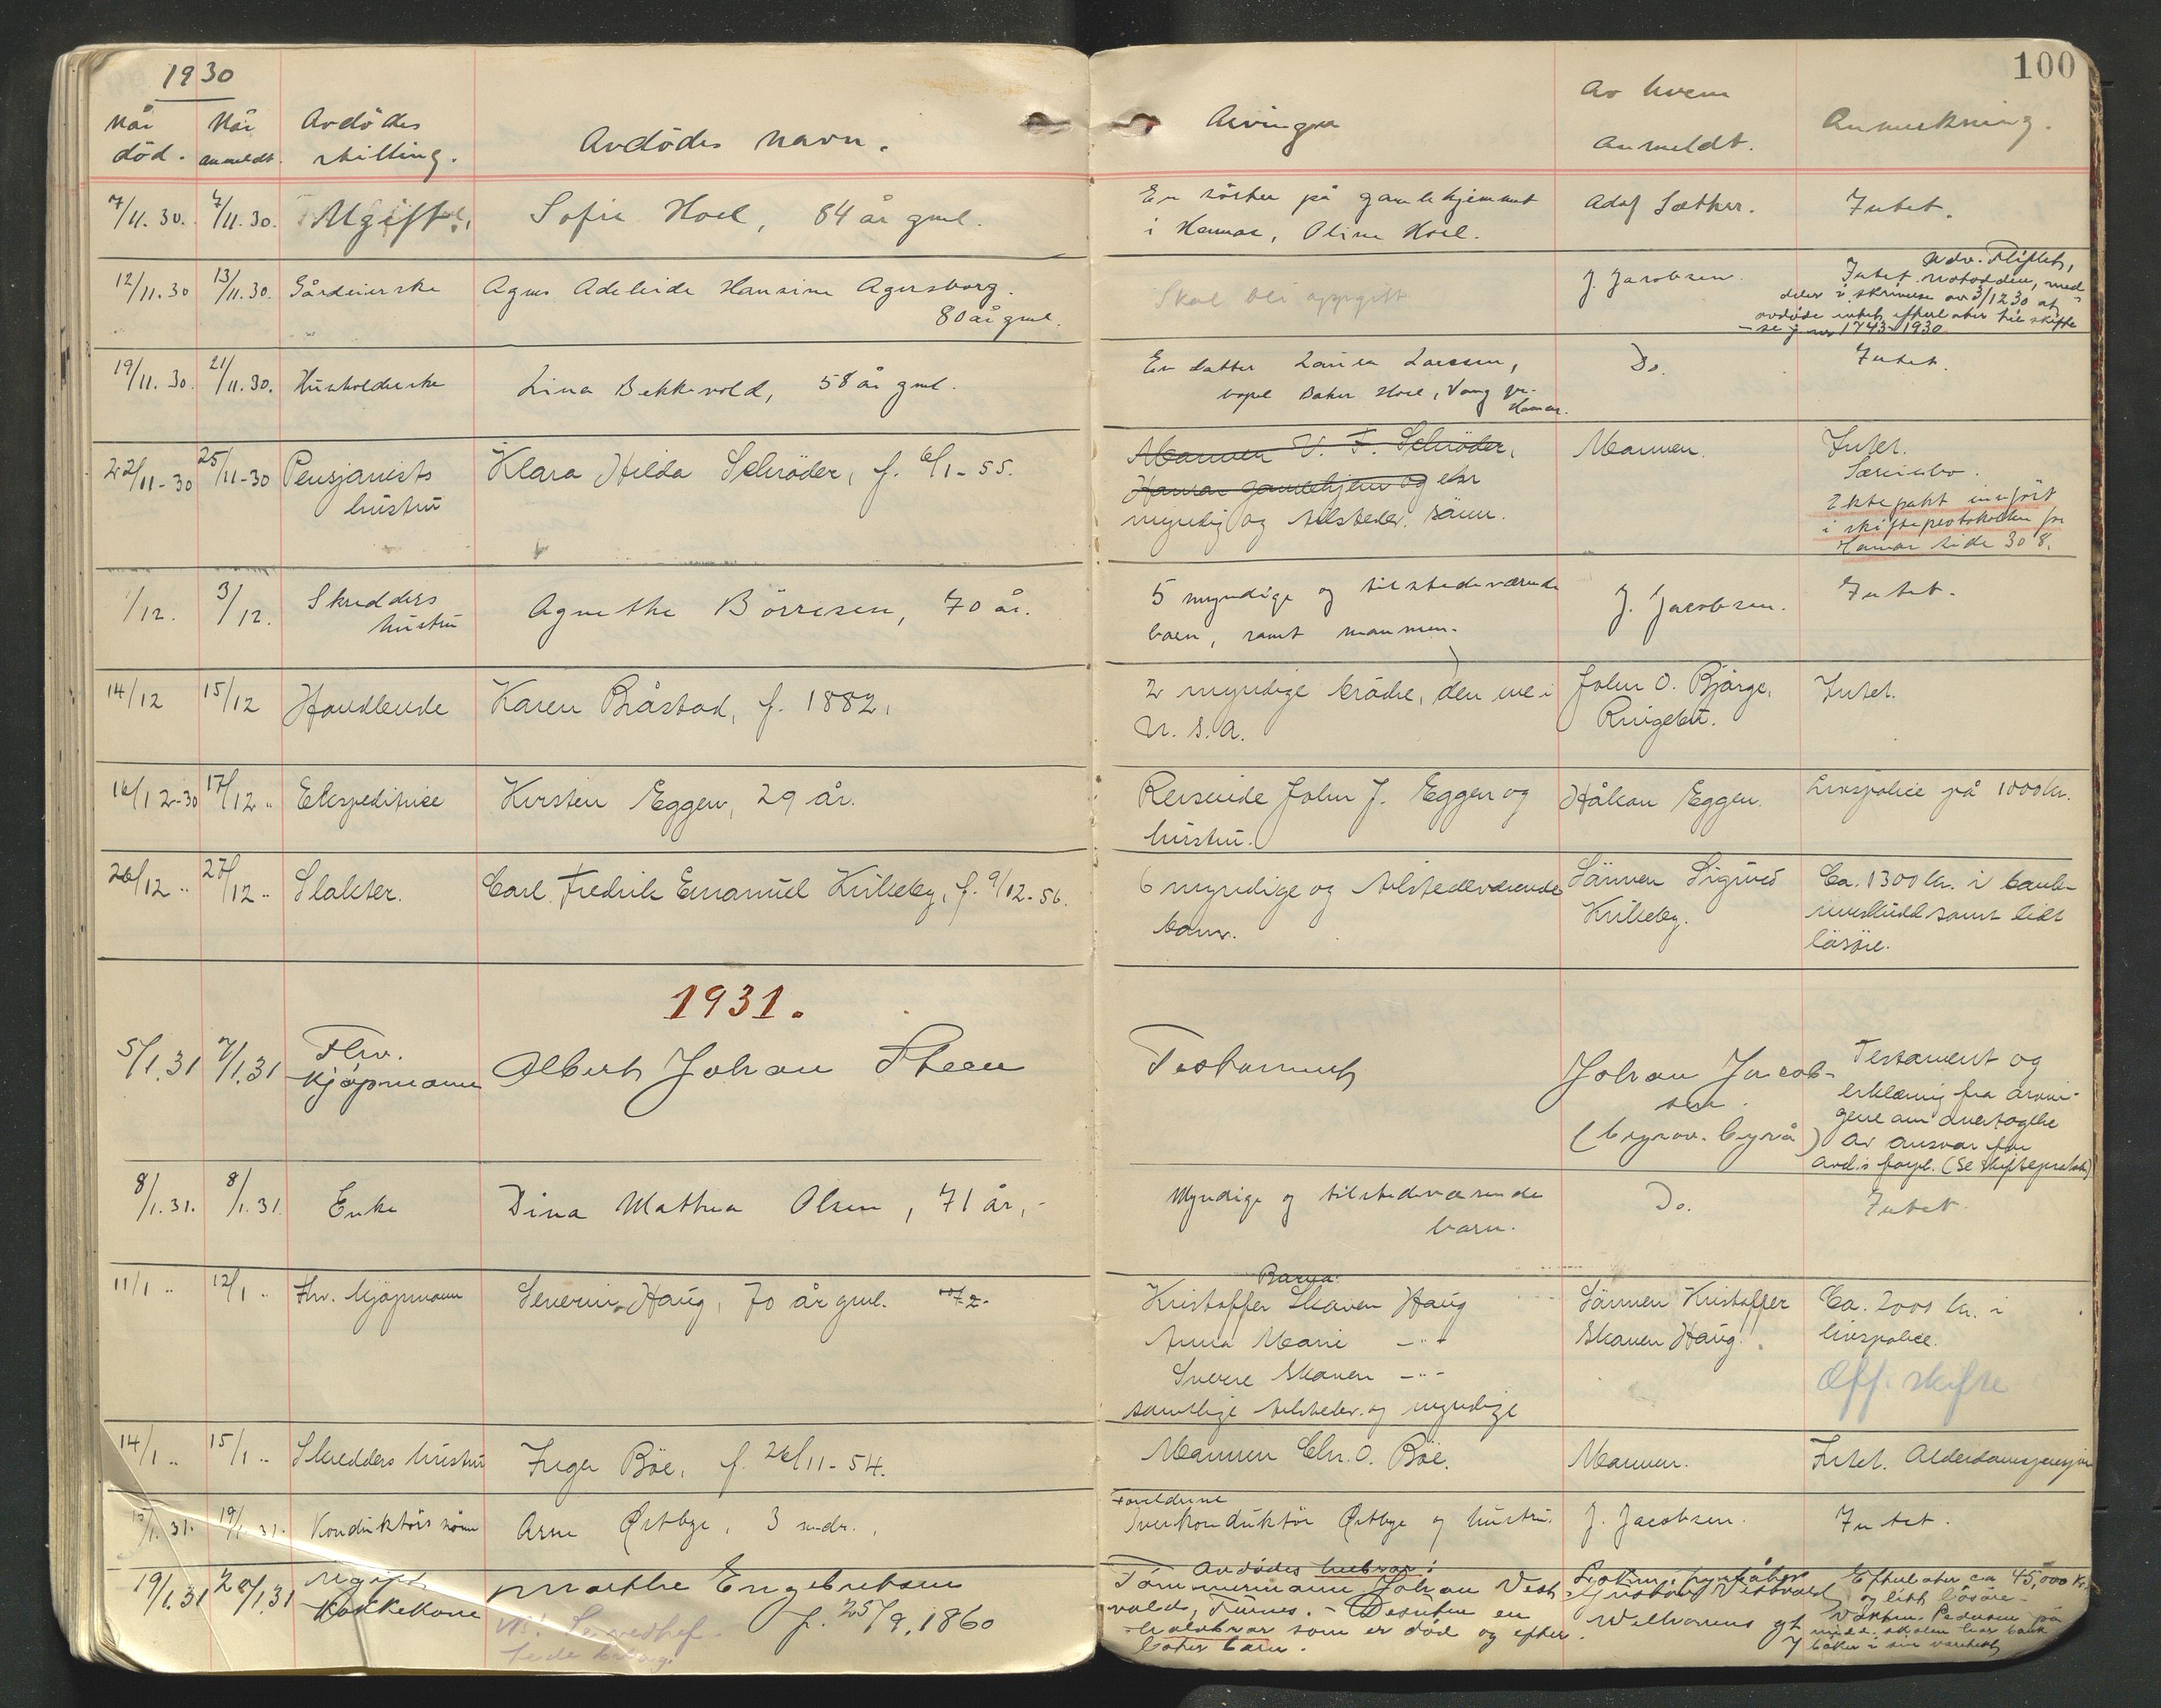 1930
100
Når død.
Når anmeldt.
Avdödes stilling.
Avdödes navn.
Arvinger
Av hvem anmeldt.
Anmerkning.
7/11.30. 7/11.30. Ugift. Sofie Hoel, 84 år gml.
En söster på gamlehjemmet
i Hamar, Oline Hoel.
Adof Sæther.
Intet.
12/11.30 13/11.30. Gårdeierske Agnes Adeleide Hansine Agersborg.
80 år gml.
Skal bli oppgitt
J. Jacobsen.
Adv. Fliflet,
Intet. Notodden, med-
deler i skrivelse av 3/12 30 at
avdøde intet efterlater til skifte
- se j.nr 1743-1930
19/11.30. 21/11.30. Husholderske Lina Bekkevold, 58 år gml.
En datter Larsen,
bopel Baker Hoel, Vang pr.
Hamar.
Do.
Intet.
22/11-30 25/11-30 Pensjonists
hustru
Klara Hilda Schröder, f. 6/1-55.
Mannen V. F. Schröder,
Hamar gamlehjem og en
myndig og tilstedev. sönn.
Mannen.
Intet.
Særeiebo.
Ektepakt innfört
i skifteprotokollen for
Hamar side 308.
1/12. 3/12. Skredders
hustru
Agnethe Börresen, 70 år.
5 myndige og tilstedeværende
barn, samt mannen.
J. Jacobsen.
Intet.
14/12 15/12 Handlende Karen Bråstad, f. 1882.
2 myndige brödre, den ene i
U.S.A.
John O. Bjørge,
Ringebu.
Intet.
16/12-30 17/12 " Ekspeditrise Kirsten Eggen, 29 år.
Reisende John J. Eggen og
hustru.
Håkon Eggen.
Livspolice på 1000 kr.
26/12 " 27/12 " Slakter. Carl Fredrik Emanuel Krikeby, f. 9/12-56.
6 myndige og tilstedeværende
barn.
Sönnen Sigurd
Krikeby.
Ca. 1300 kr. i bank-
innskudd samt lidt
lösöre.
1931.
5/1.31 7/1.31 Fhv.
Kjøpmann
Albert Johan Steen
Testament
Johan Jacob-
sen.
(begrav. byrå)
Testament og
erklæring fra arvin-
gene om overtagelse
av ansvar for
avd.s forpl. (Se skifteprotok)
8/1.31. 8/1.31 Enke Dina Mathea Olsen, 71 år,-
Myndige og tilstedeværende
barn.
Do.
Intet.
11/1 " 12/1 " Fhv. kjøpmann Severin Haug, 70 år gml.
Barna:
Kristoffer Skaven Haug
Anna Marie - " -
Sverre Skaven - " -
samtlige tilstedev. og myndige
Sönnen Kristoffer
Skaven Haug.
Ca. 2000 kr. i
livspolice.
Off. skifte
14/1 " 15/1 " Skredders hustru Inger Böe, f. 26/11-54.
Mannen Chr. O. Böe.
Mannen.
Intet. Alderdomspensjon
19/1.31. Konduktörs sönn Arne Østbye, 3 mdr.
Foreldrene
Overkonduktör Østbye og hustru.
J. Jacobsen.
Intet.
19/1.31 20/1.31 Ugift
Kokkekone
Marthe Engebretsen
f. 25/9.1860
Avdödes helbror:
Tömmermann Johan Vest-
vold, Furnes. - Desuten en
halvbror som er död og efter-
later barn.
Gustav Vestvold
Wilhavens gt 7
Efterlater ca 45,000 kr.
og litt lösöre-
Vaktm. Pedersen på
midd. skolen har bank-
böker i sin varetekt